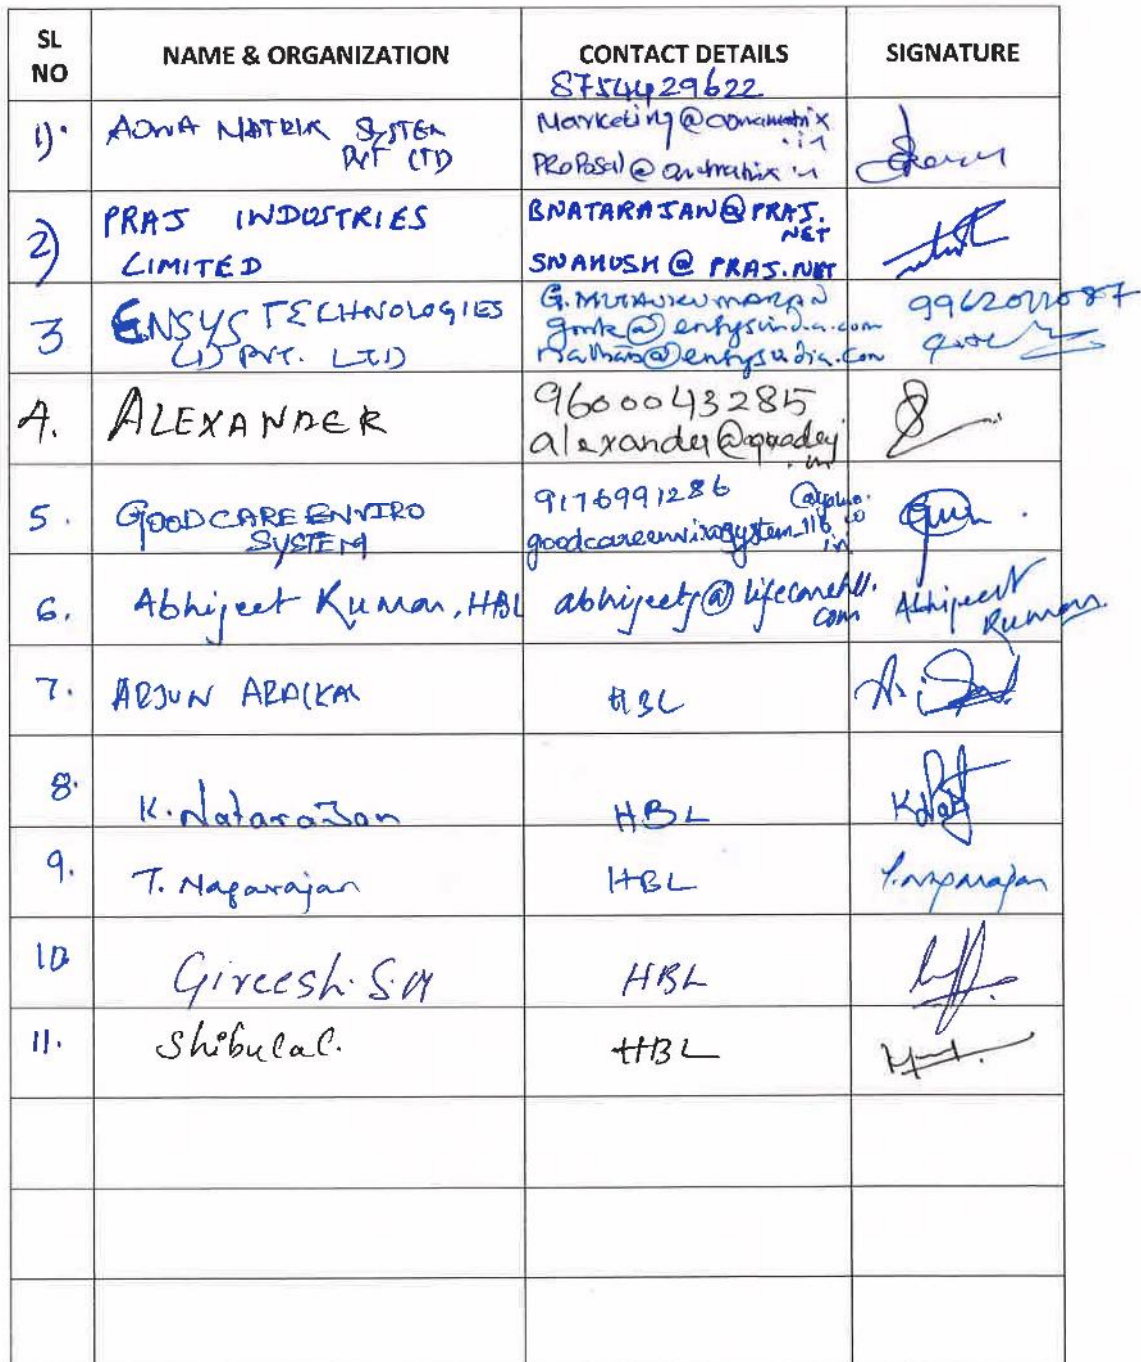 SL NO
NAME & ORGANIZATION
CONTACT DETAILS
SIGNATURE
8754429622
1)
MATRIX SYSTEM
PVT LTD
Marketing@
.in
Proposal@
2)
PRAJ INDUSTRIES
LIMITED
BNATARAJAN@PRAJ.
NET
SNAHUSH@PRAJ.NET
3
ENSYS TECHNOLOGIES
(I) PVT. LTD
G. MUTHUKUMARAN
9962011087
4.
ALEXANDER
9600043285
alexander@
.in
5.
GOODCARE ENVIRO
SYSTEM
9176991286
goodcareenvirosystem_116
6.
Abhijeet Kumar, HBL
abhijeetj@lifecarehll.
com
Abhijeet
Kumar
7.
ARJUN
HBL
8.
K. Natarajan
HBL
9.
T. Nagarajan
HBL
T. Nagarajan
10
Gireesh. S.M
HBL
11.
Shibulal.
HBL